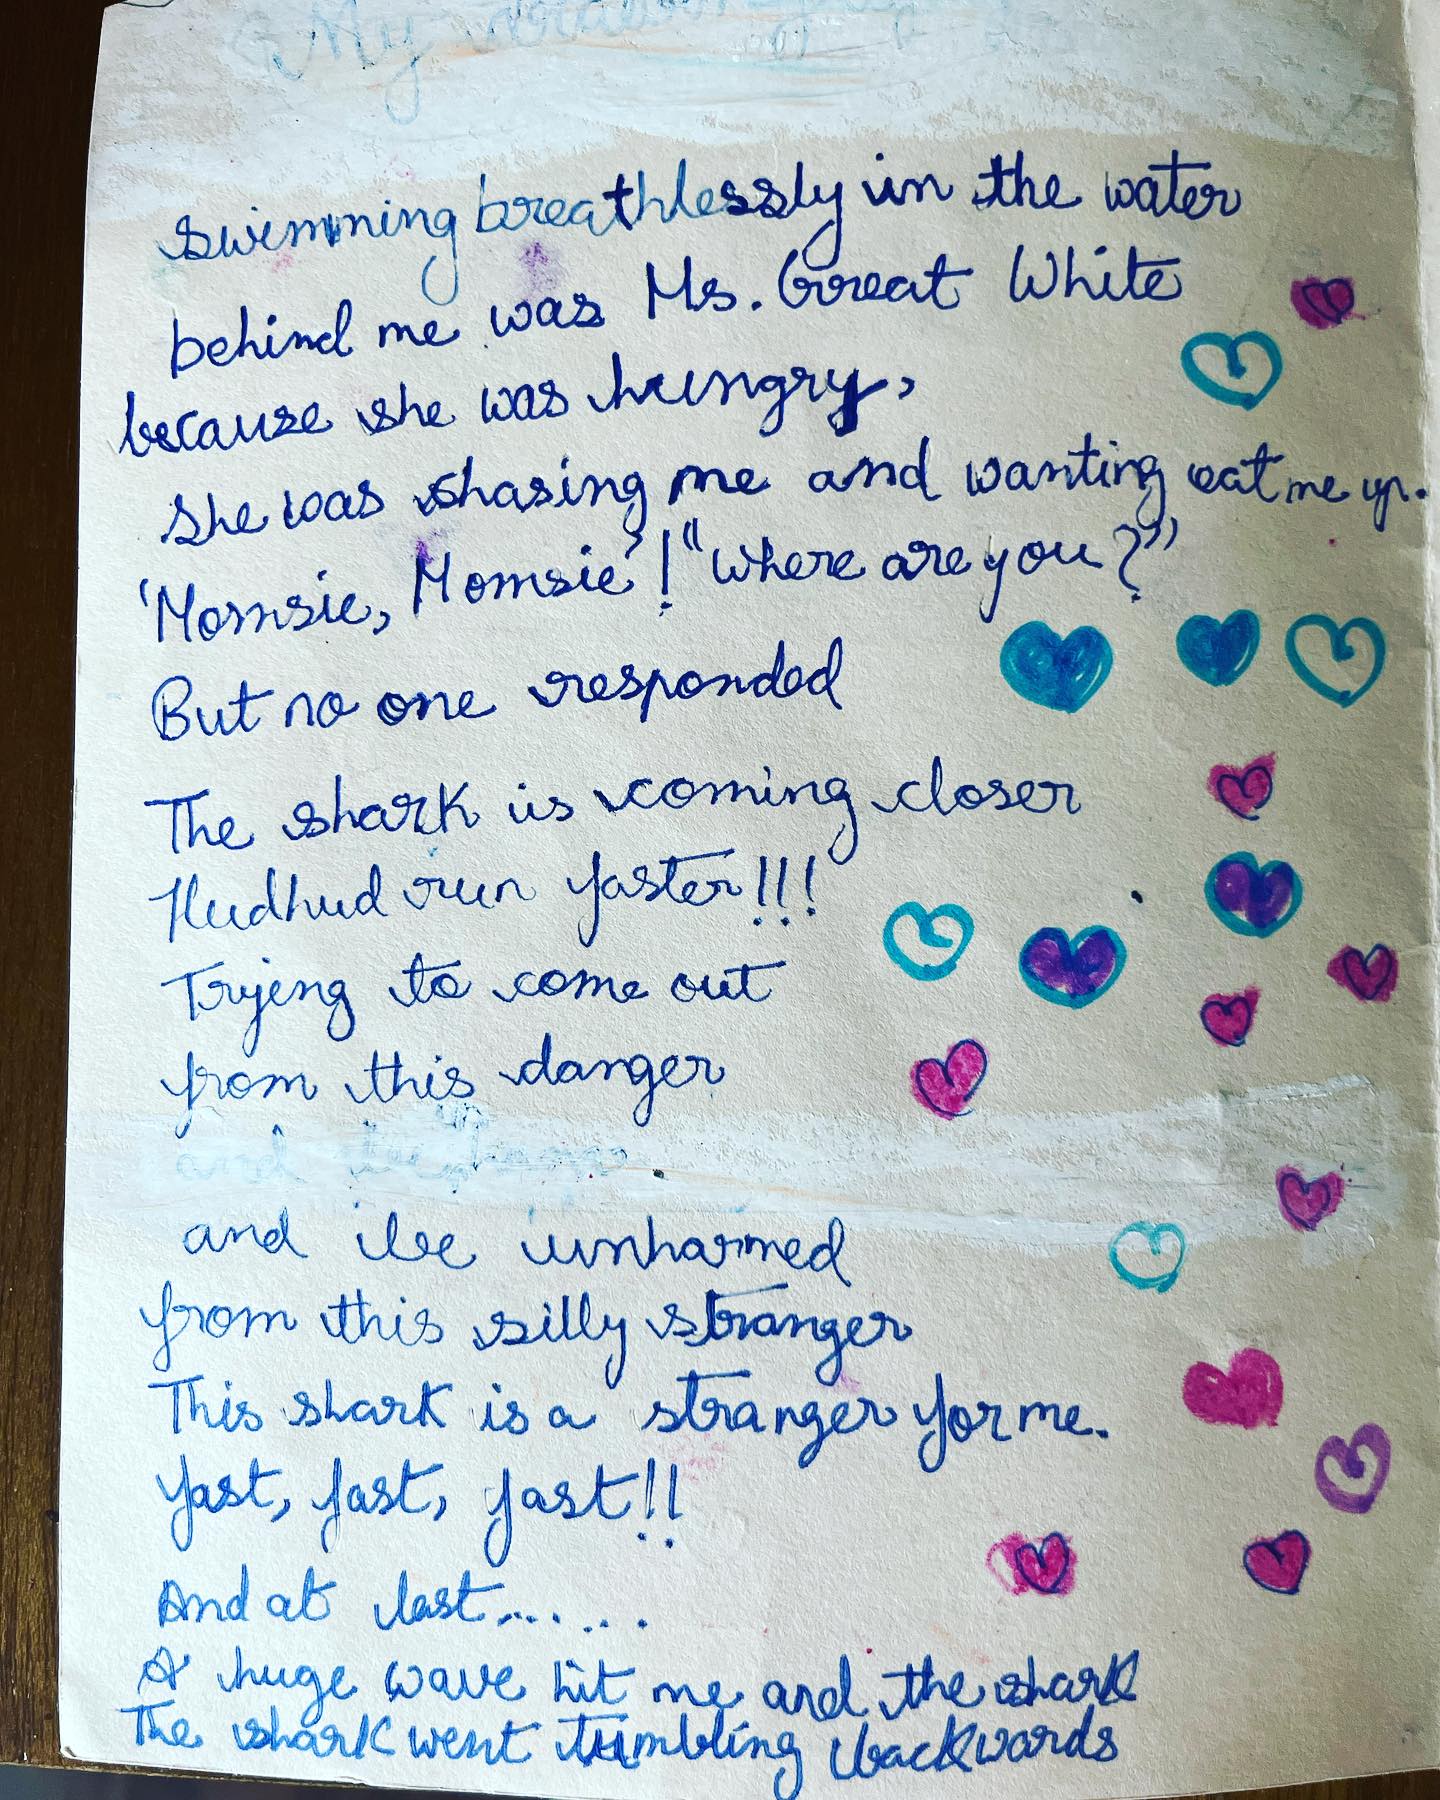 My
swimming breathlessly in the water
behind me was Ms. Great White
because she was hungry,
She was shasing me and wanting eat me up.
'Momsie, Momsie'! "where are you?"
But no one responded
The shark is coming closer
Hudhud run faster!!!
Tryeng to come out
from this danger
and
and ibe unharmed
from this silly stranger
This shark is a stranger for me.
Fast, fast, fast!!
And at last......
A huge wave hit me and the shark
The shark went tumbling backwards